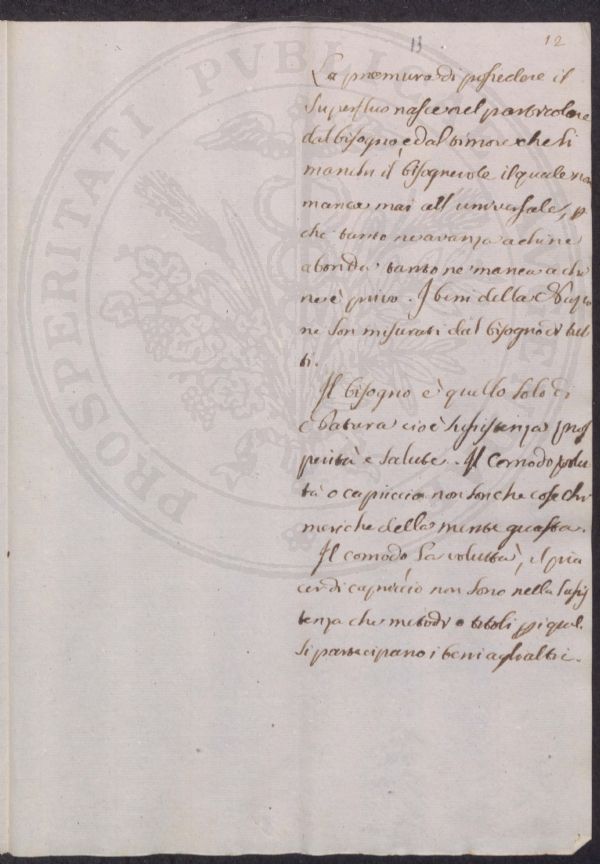 13 12
La premura di possedere il
superfluo nasce nel particolare
dal bisogno, e dal timore che li
manchi il bisognevole il quale non
manca mai all' universale, p
che tanto ne avanza a chi ne
abonda tanto ne manca a chi
ne è privo. I beni della Nazio
ne son misurati dal bisogno di tut
ti.
Il bisogno è quello solo di
Natura cioè sussistenza pros
perità e salute. Il comodo volut
tà o capriccio non son che cose chi
meriche della mente guasta.
Il comodo la voluttà, il pia
cer di capriccio non sono nella sussis
tenza che metodi o titoli p i quali
si partecipano i beni agl'altri.
PROSPERITATI PUBLICAE